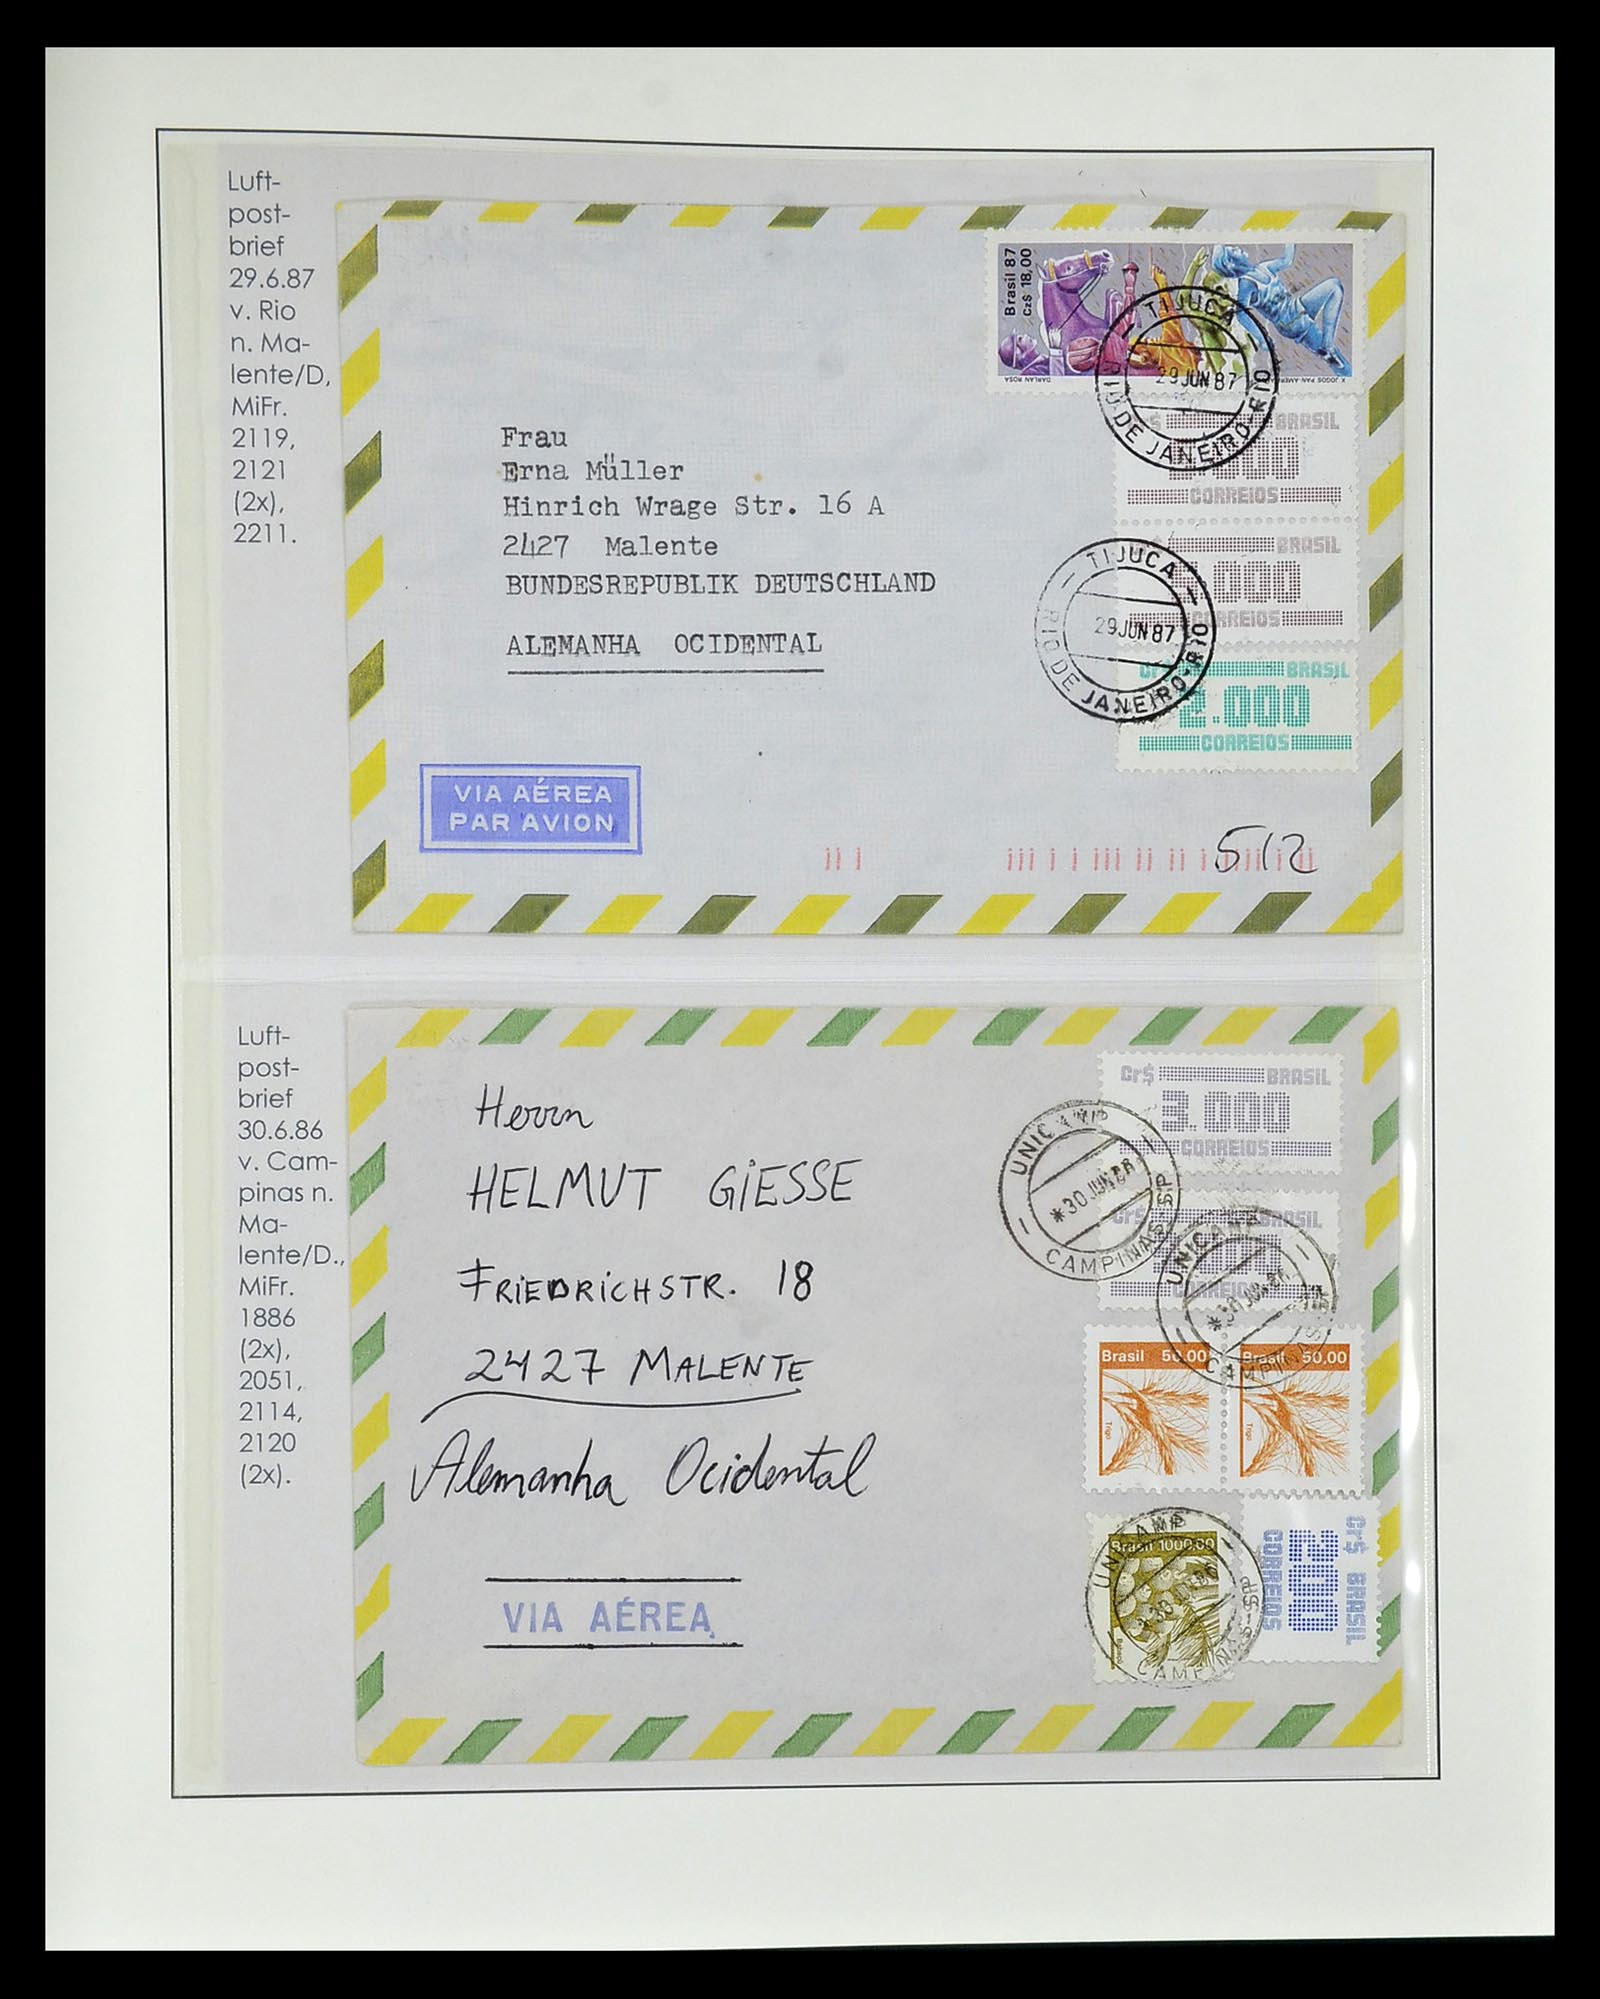 Luft-
post-
brief
29.6.87
v. Rio
n. Ma-
lente/D,
MiFr.
2119,
2121
(2x),
2211.
Brasil 87
Cz$ 18,00
DARLAN ROSA
X JOGOS PAN-AMERICANOS
TIJUCA
29 JUN 87
RIO DE JANEIRO-RIO
BRASIL
CORREIOS
BRASIL
CORREIOS
TIJUCA
29 JUN 87
RIO DE JANEIRO-RIO
Cr$ BRASIL
2.000
CORREIOS
Frau
Erna Müller
Hinrich Wrage Str. 16 A
2427 Malente
BUNDESREPUBLIK DEUTSCHLAND
ALEMANHA OCIDENTAL
VIA AÉREA
PAR AVION
512
Luft-
post-
brief
30.6.86
v. Cam-
pinas n.
Ma-
lente/D.,
MiFr.
1886
(2x),
2051,
2114,
2120
(2x).
Cr$ BRASIL
3.000
CORREIOS
UNICAMP
*30 JUN 86
CAMPINAS-SP
Cr$ BRASIL
CORREIOS
UNICAMP
*30 JUN 86
CAMPINAS-SP
Brasil 50,00
Trigo
Brasil 50,00
Trigo
Brasil 1000,00
UNICAMP
30 JUN 86
CAMPINAS-SP
Cr$ BRASIL
200
CORREIOS
Herrn
HELMUT GIESSE
FRIEDRICHSTR. 18
2427 MALENTE
Alemanha Ocidental
VIA AÉREA